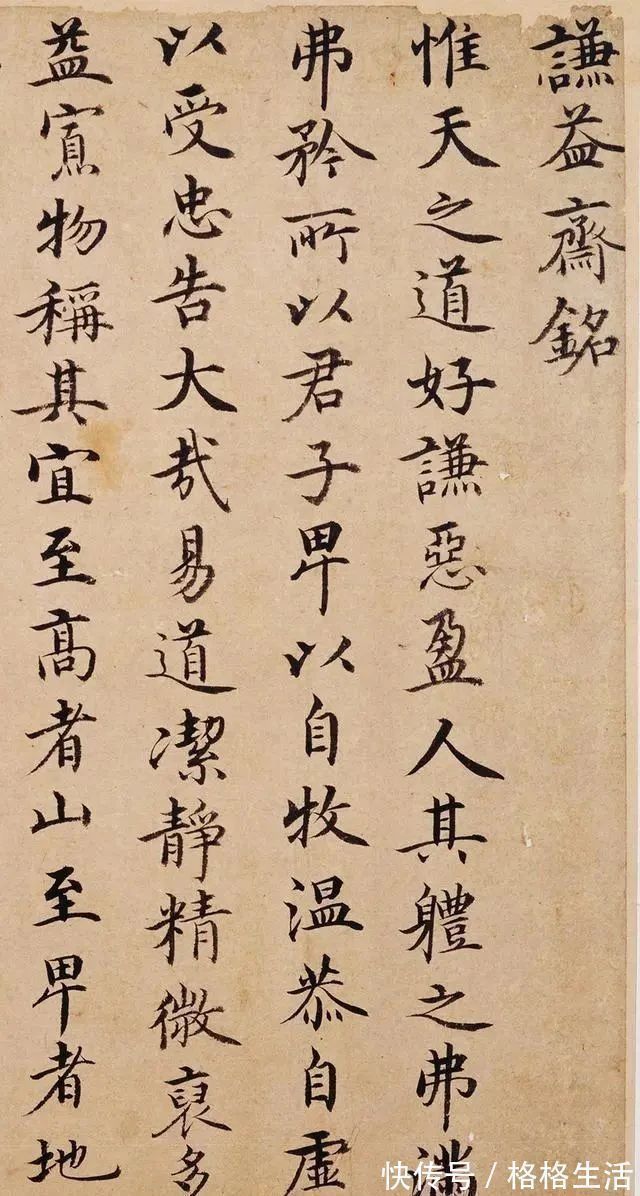 謙益齋銘
惟天之道好謙惡盈人其體之弗滿
弗矜所以君子卑以自牧溫恭自虛
以受忠告大哉易道潔靜精微裒多
益寡物稱其宜至高者山至卑者地
快传号/格格生活